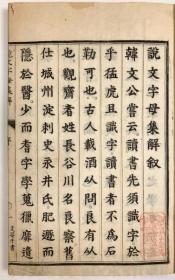 說文字母集解叙
韓文公嘗云讀書先須識字於
乎猛虎且識字讀書者不爲石
勒可也古人載酒從問良有以
也觀齋者姓長谷川名良察舊
仕城州淀刺史永井氏肥遯而
隱於醫少而耆字學蒐獵靡遺